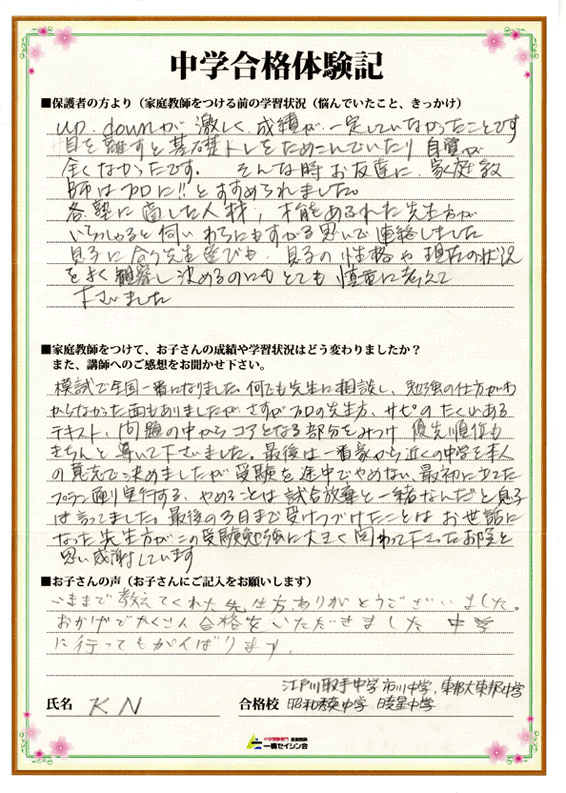 中学合格体験記
■保護者の方より（家庭教師をつける前の学習状況（悩んでいたこと、きっかけ）
up. downが激しく成績が一定していなかったことです
目を離すと基礎トレをためこんでいたり 自覚が
全くなかったです。 そんな時お友達に、家庭教
師はプロに!!とすすめられました。
各塾に適した人材、才能あふれた先生方が
いらっしゃると伺い わらにもすがる思いで連絡しました
息子に合う先生選びも、息子の性格や現在の状況
をよく観察し決めるのにもとても慎重に考えて
下さいました
■家庭教師をつけて、お子さんの成績や学習状況はどう変わりましたか？
また、講師へのご感想をお聞かせ下さい。
模試で全国一番になりました。何でも先生に相談し、勉強の仕方がわ
からなかった面もありましたが さすがプロの先生方、サピのたくさんある
テキスト、問題の中からコアとなる部分をみつけ 優先順位も
きちんと導いて下さいました。最後は一番家から近くの中学を本人
の意志で決めましたが受験を途中でやめない、最初に立てた
プラン通り実行する、やめることは試合放棄と一緒なんだと息子
は言ってました。最後の3日まで受けつづけたことは お世話に
なった先生方がこの受験勉強に大きく関わって下さったお陰と
思い感謝しています
■お子さんの声（お子さんにご記入をお願いします）
いままで教えてくれた先生方、ありがとうございました。
おかげでたくさん合格をいただきました 中学
に行ってもがんばります。
江戸川取手中学 市川中学、東邦大東邦中学
氏名 KN 合格校 昭和秀英中学 暁星中学
一橋セイシン会